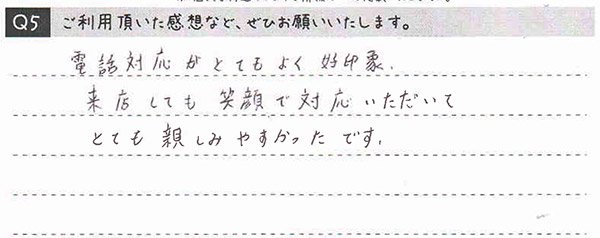 Q5 ご利用頂いた感想など、ぜひお願いいたします。
電話対応がとてもよく好印象.
来店しても笑顔で対応いただいて
とても親しみやすかったです.